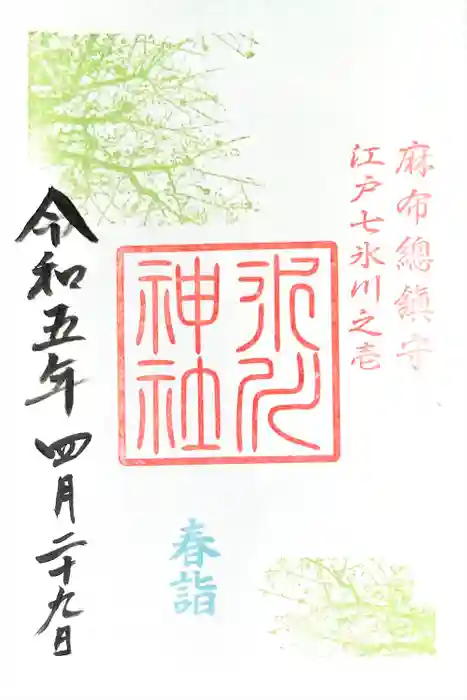 麻布總鎮守
江戸七氷川之壱
氷川
神社
春詣
令和五年四月二十九日